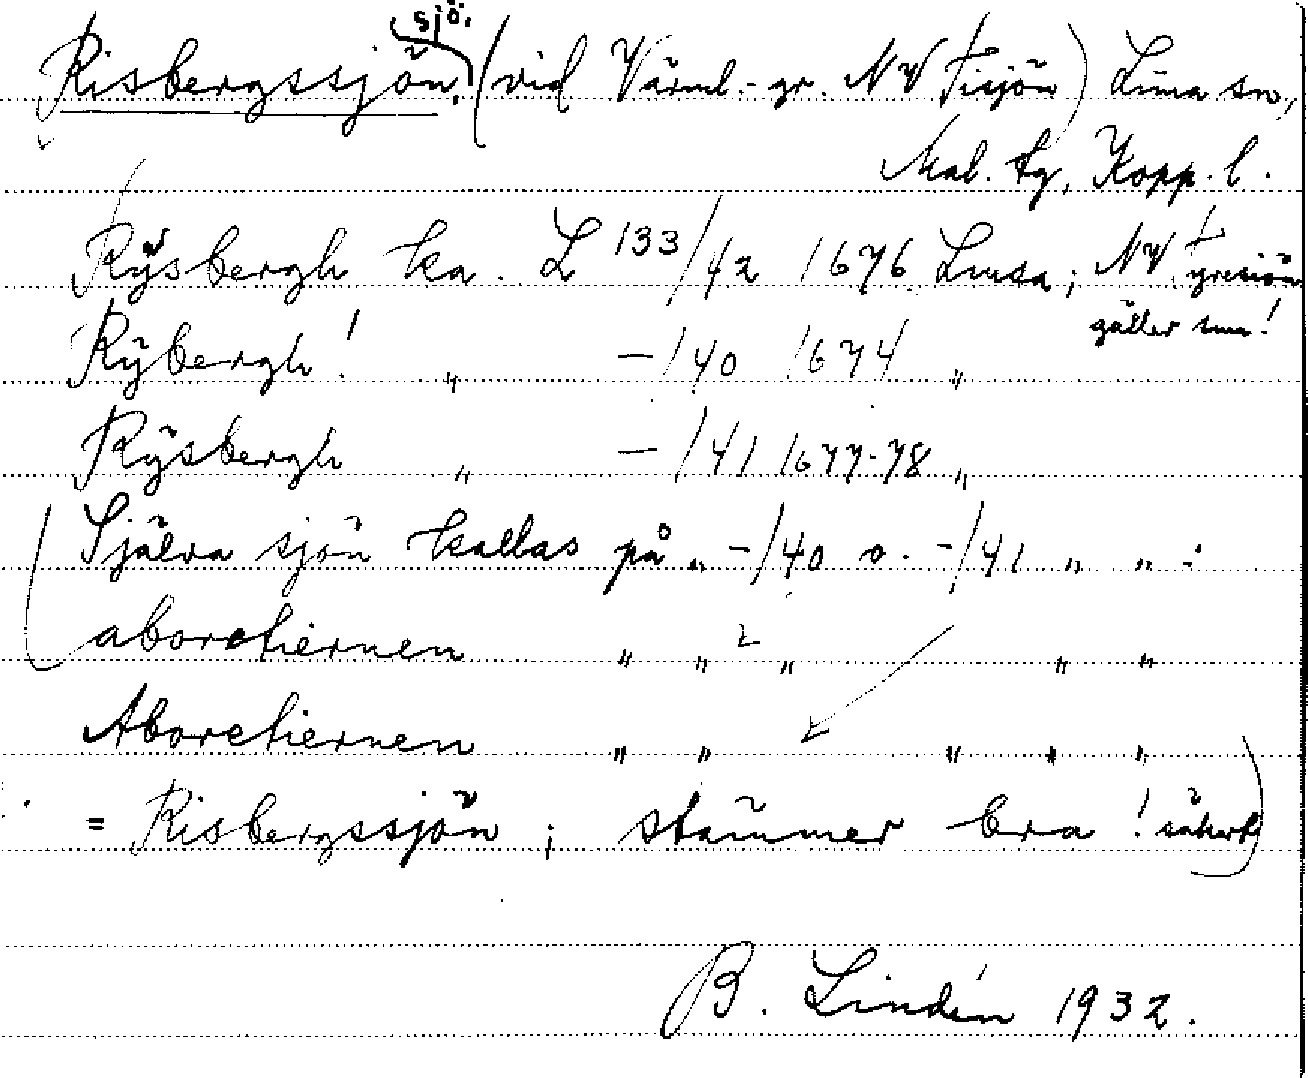 sjö.
Risbergssjön. (vid Värml.-gr. NV Tisjön) Lima sn,
Mal. tg, Kopp. l.
Rÿsbergh ka. L 133/42 1676 Limsa; NV
gäller
Rÿbergh! " -/40 1674 "
Rÿsbergh " -/41 1677-78 "
(Själva sjön kallas på " -/40 o. -/41 " " :
aboretiernen " " " " "
Aboretiernen " " " " "
= Risbergssjön; stämmer bra! säkert)
B. Lindén 1932.